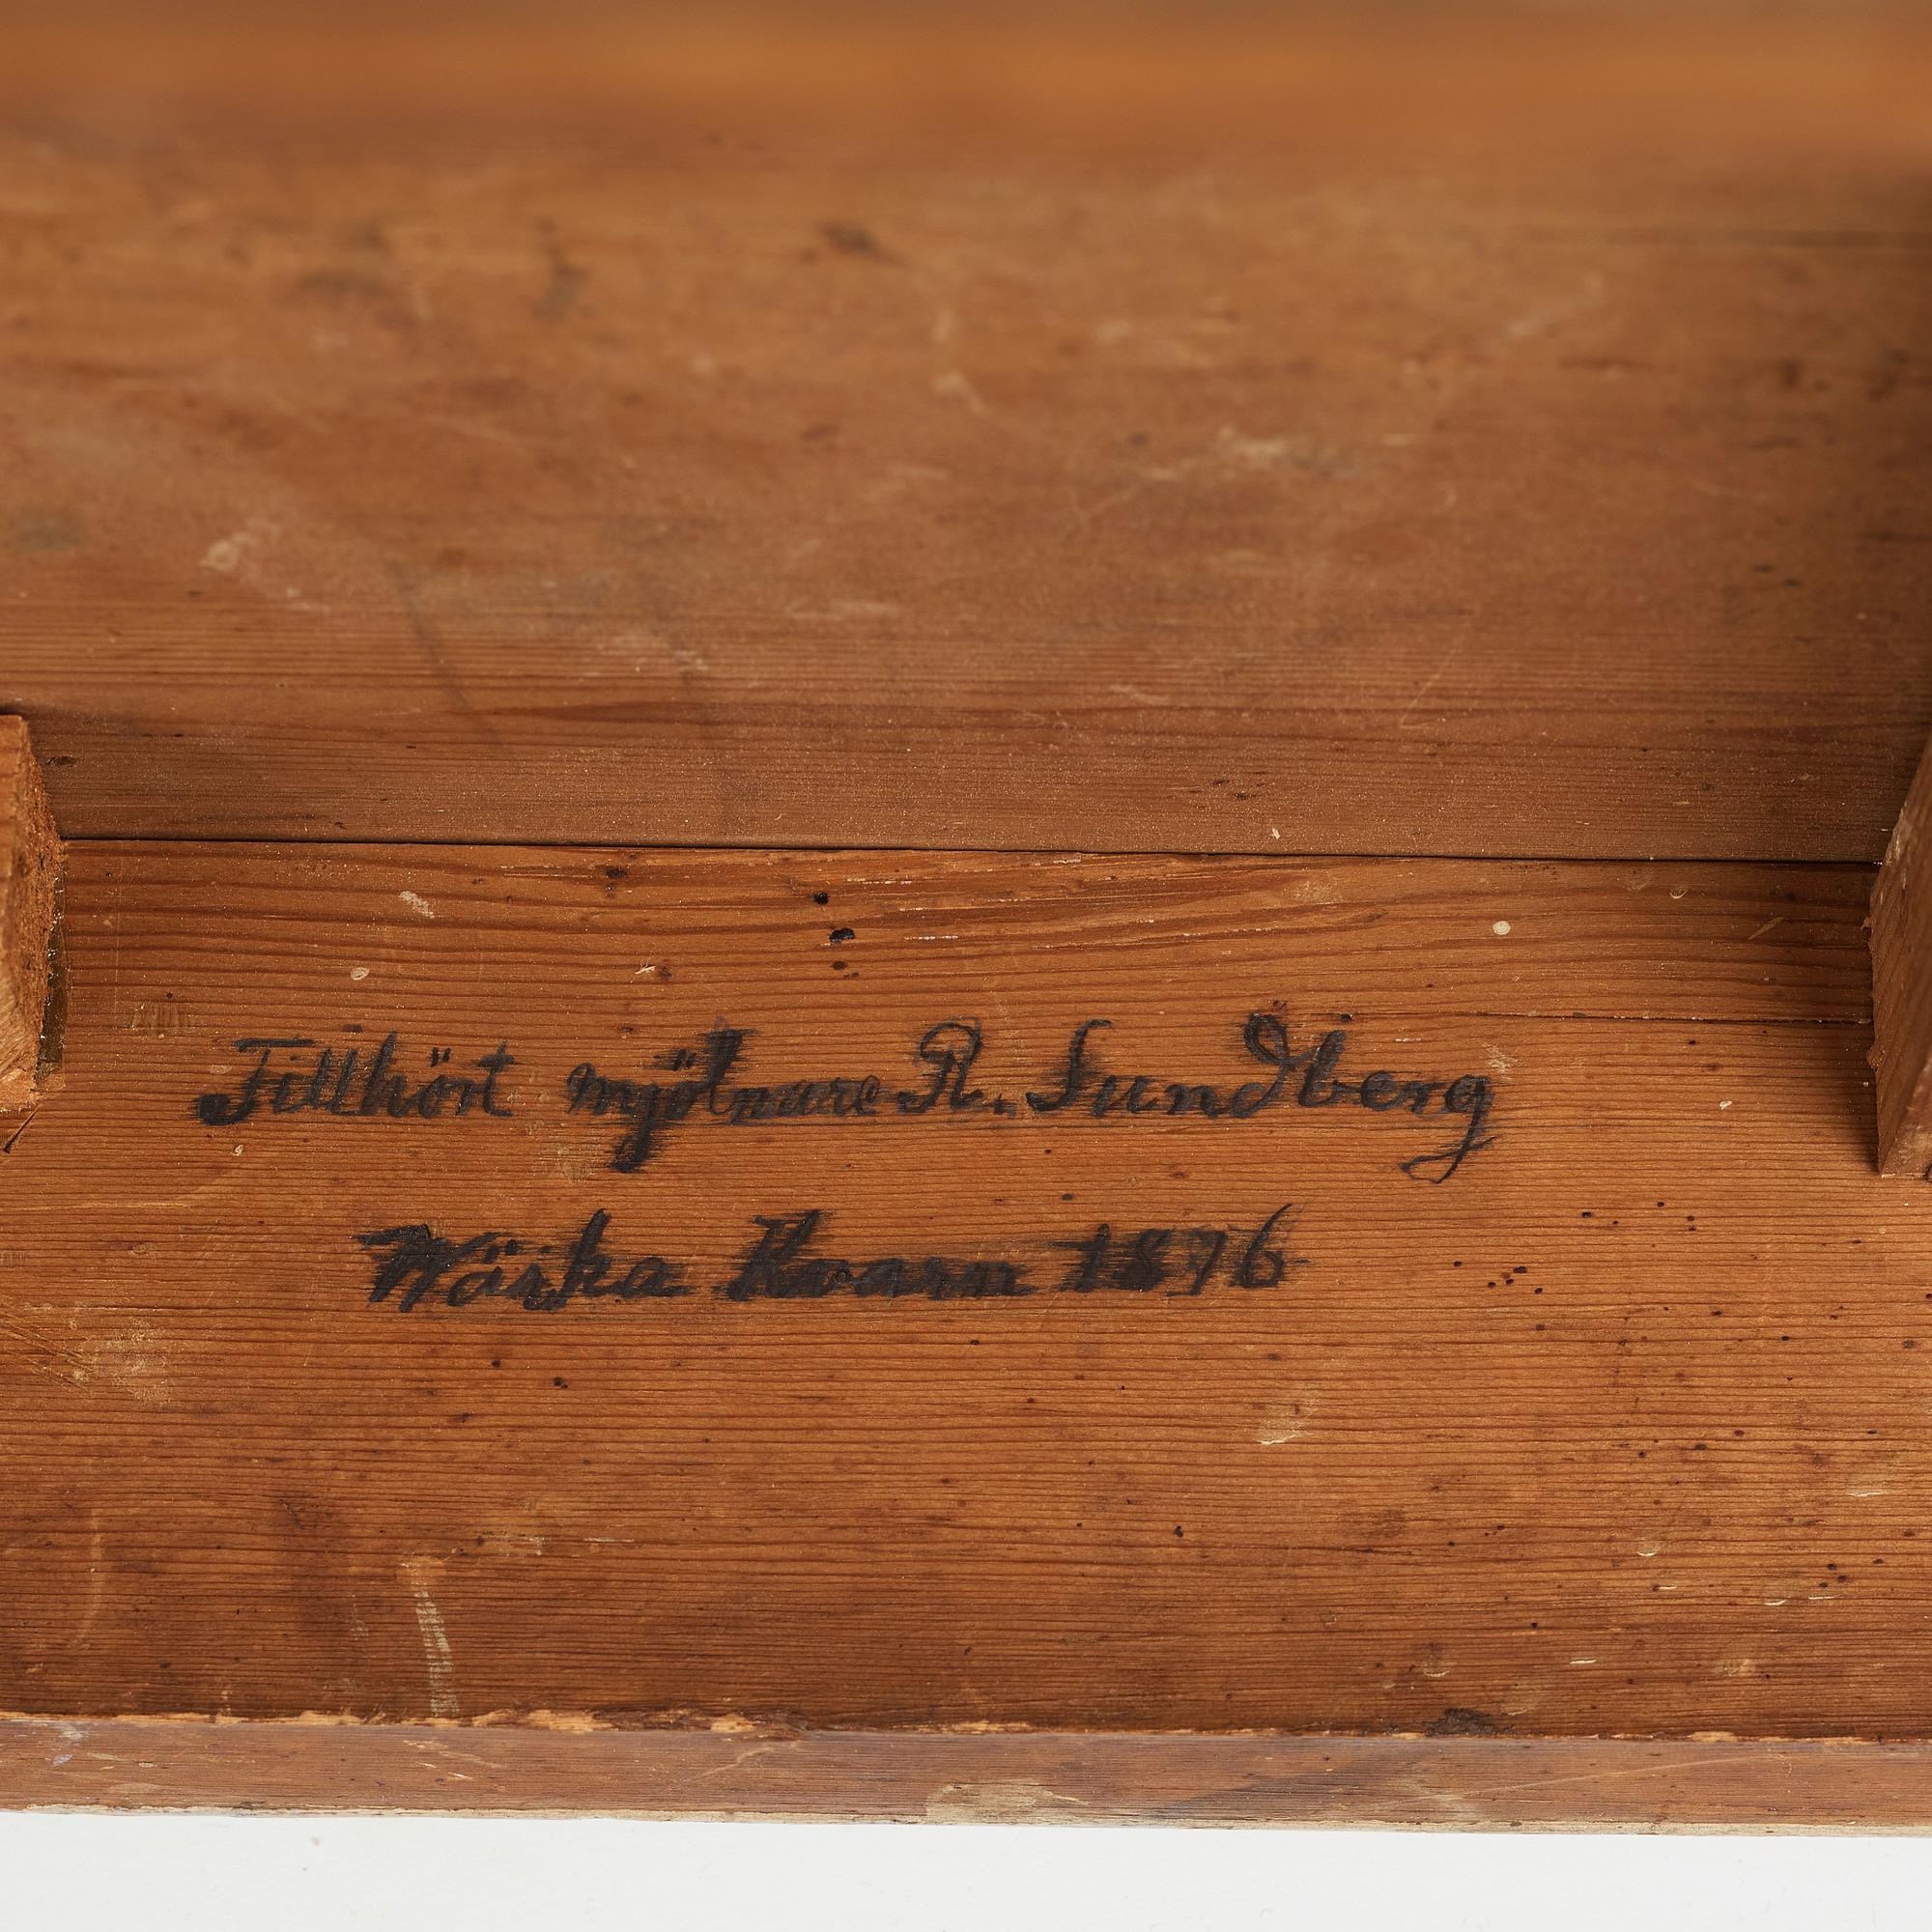 Tillhört mjölnare R. Sundberg
Wäska Kvarn 1896